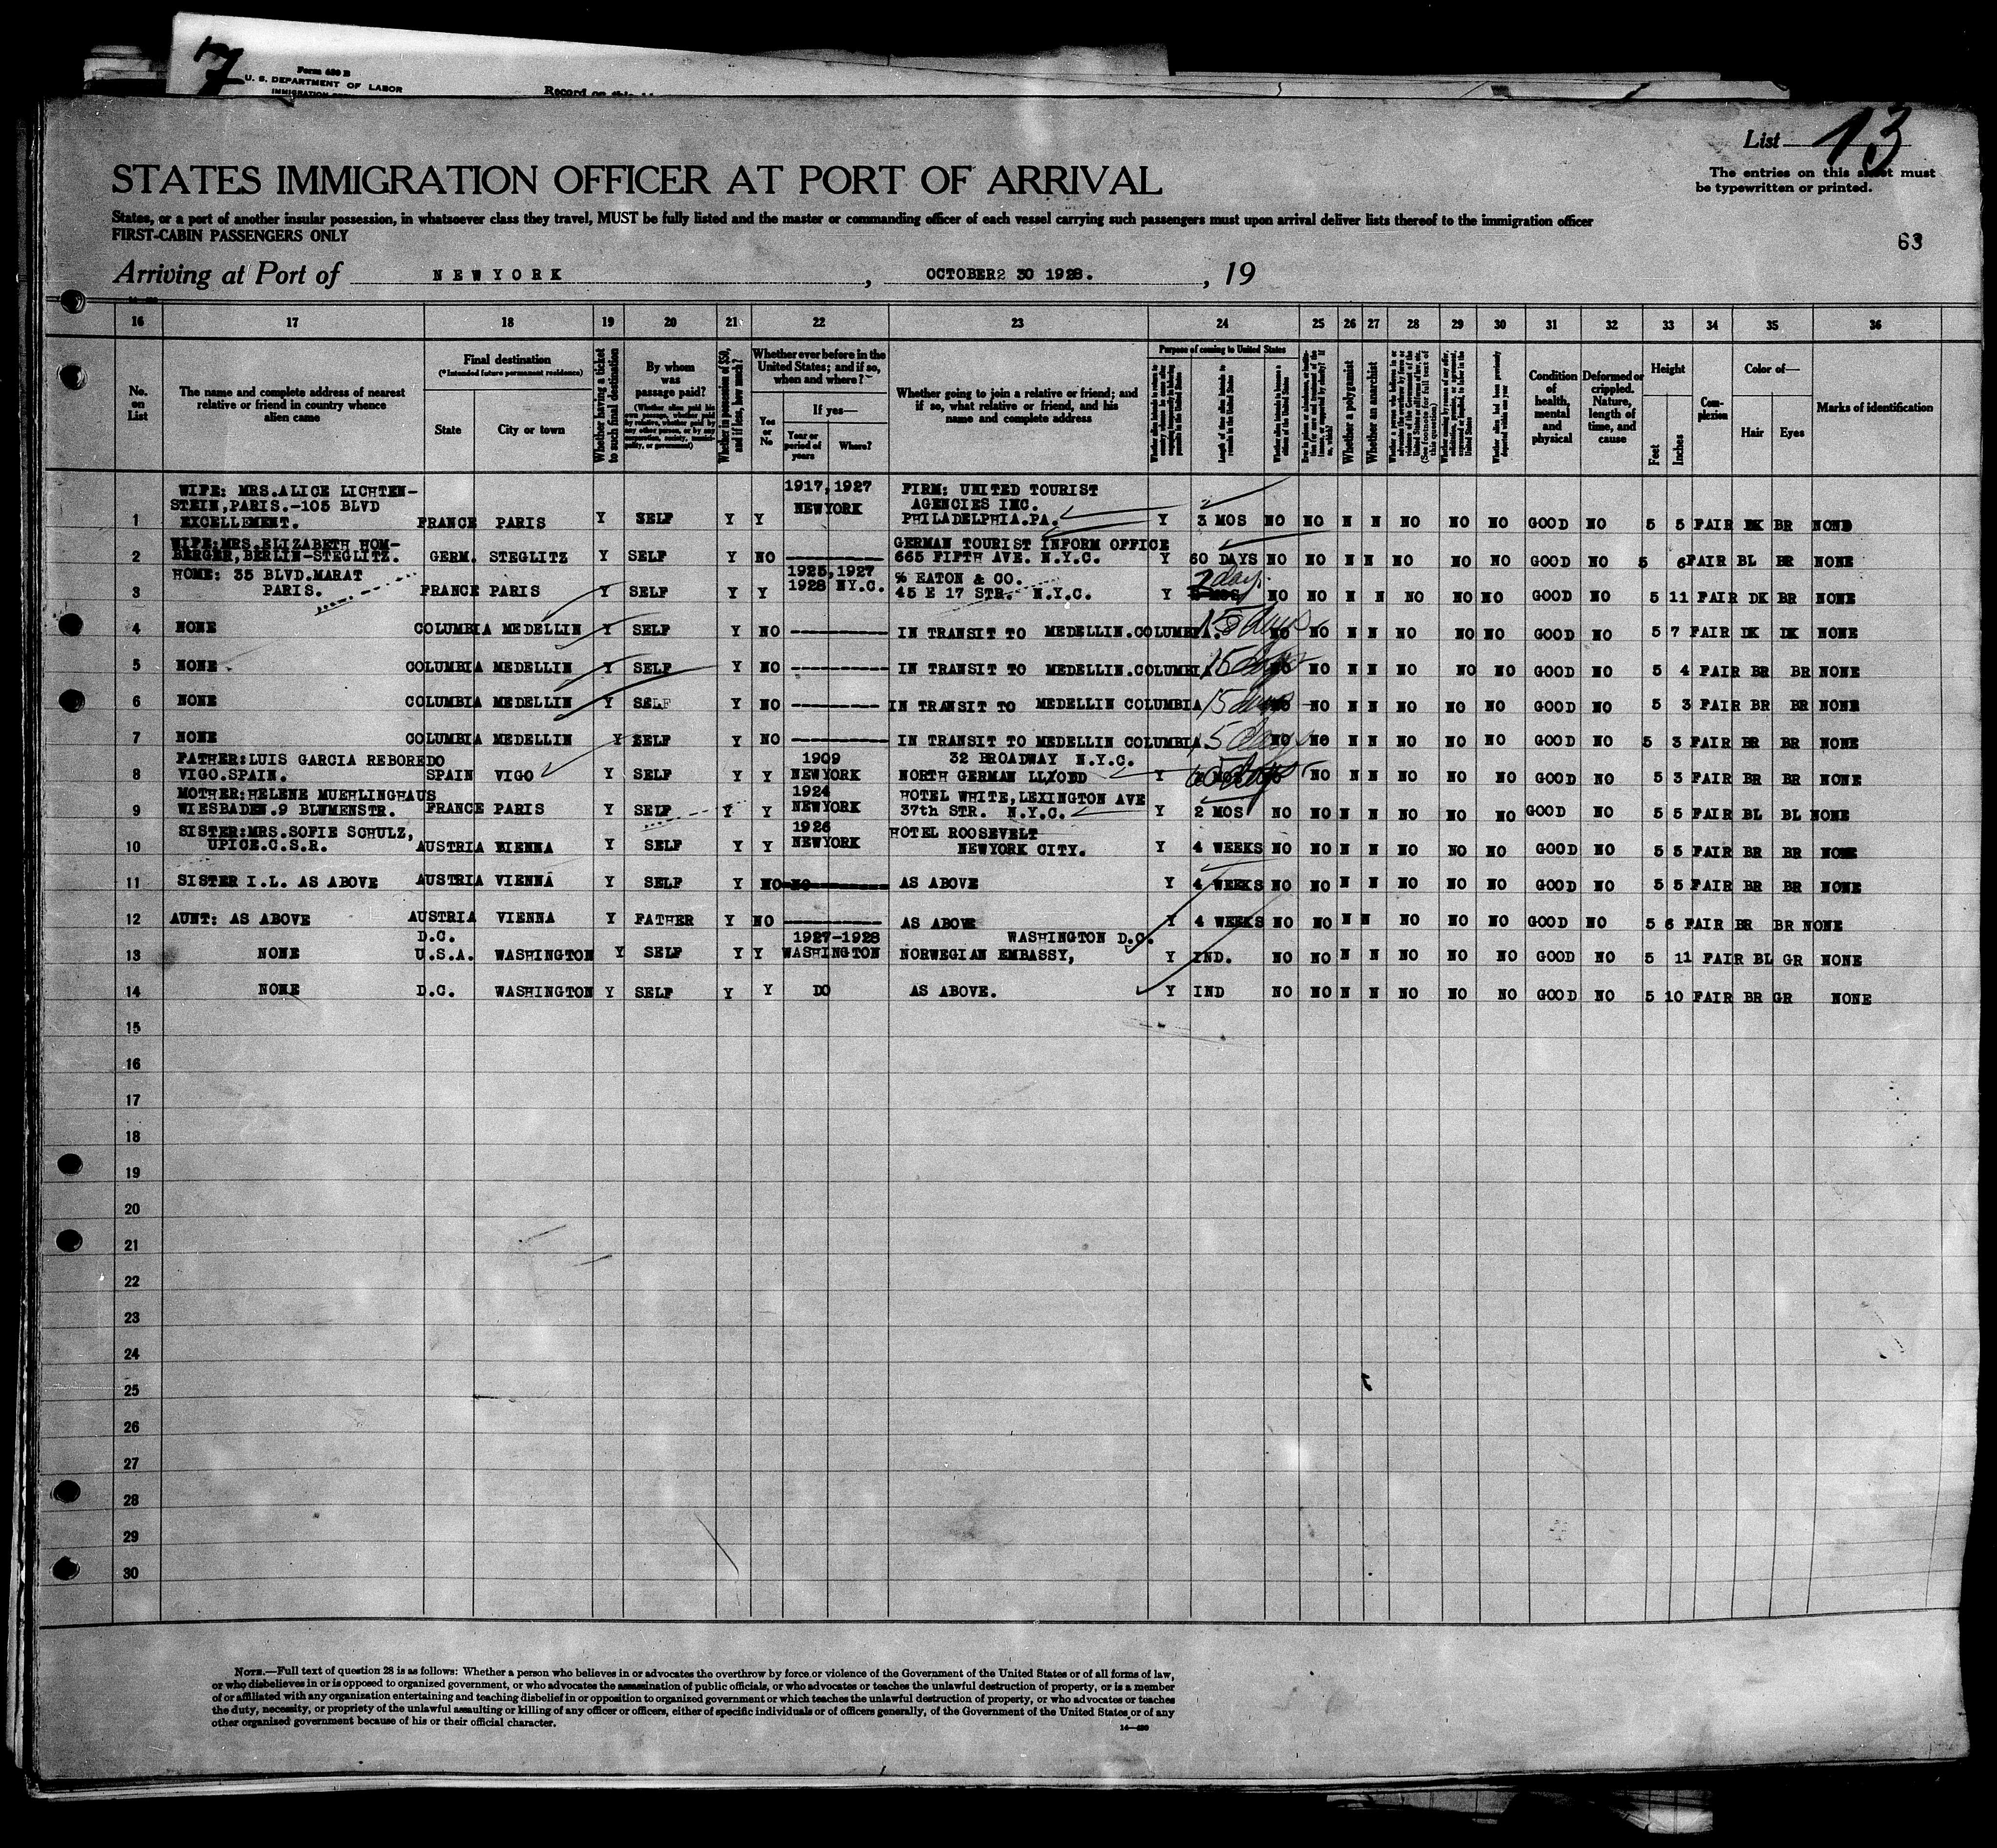 7
Form 630 B
U. S. DEPARTMENT OF LABOR
Record on this
List 13
The entries on this sheet must
be typewritten or printed.
STATES IMMIGRATION OFFICER AT PORT OF ARRIVAL
States, or a port of another insular possession, in whatsoever class they travel, MUST be fully listed and the master or commanding officer of each vessel carrying such passengers must upon arrival deliver lists thereof to the immigration officer
FIRST-CABIN PASSENGERS ONLY
63
Arriving at Port of NEWYORK, OCTOBER2 30 1928., 19
16 17 18 19 20 21 22 23 24 25 26 27 28 29 30 31 32 33 34 35 36
No. on List
The name and complete address of nearest relative or friend in country whence alien came
Final destination
(*Intended future permanent residence)
State
City or town
Whether having a ticket to such final destination
By whom was passage paid?
Whether in possession of $50, and if less, how much?
Whether ever before in the United States; and if so, when and where?
Yes or No
If yes—
Year or period of years
Where?
Whether going to join a relative or friend; and if so, what relative or friend, and his name and complete address
Purpose of coming to United States
Length of time alien intends to remain in the United States
Whether a polygamist
Whether an anarchist
Condition of health, mental and physical
Deformed or crippled. Nature, length of time, and cause
Height
Feet
Inches
Complexion
Color of—
Hair
Eyes
Marks of identification
1 WIFE: MRS.ALICE LICHTEN-
STEIN,PARIS.-105 BLVD
EXCELLEMENT. FRANCE PARIS Y SELF Y Y 1917,1927 NEWYORK FIRM: UNITED TOURIST
AGENCIES INC.
PHILADELPHIA.PA. Y 3 MOS NO NO N N NO NO NO GOOD NO 5 5 FAIR DK BR NONE
2 WIFE:MRS.ELIZABETH HOM-
BERGER,BERLIN-STEGLITZ. GERM. STEGLITZ Y SELF Y NO ---------- GERMAN TOURIST INFORM OFFICE
665 FIFTH AVE. N.Y.C. Y 60 DAYS NO NO N N NO NO NO GOOD NO 5 6 FAIR BL BR NONE
3 HOME: 35 BLVD.MARAT
PARIS. FRANCE PARIS Y SELF Y Y 1925,1927
1928 NY.C. % EATON & CO.
45 E 17 STR. N.Y.C. Y 2 days NO NO N N NO NO NO GOOD NO 5 11 FAIR DK BR NONE
4 NONE COLUMBIA MEDELLIN Y SELF Y NO ---------- IN TRANSIT TO MEDELLIN.COLUMBIA. 15 days NO NO N N NO NO NO GOOD NO 5 7 FAIR DK DK NONE
5 NONE COLUMBIA MEDELLIN Y SELF Y NO ---------- IN TRANSIT TO MEDELLIN.COLUMBIA 15 days NO NO N N NO NO NO GOOD NO 5 4 FAIR BR BR NONE
6 NONE COLUMBIA MEDELLIN Y SELF Y NO ---------- IN TRANSIT TO MEDELLIN COLUMBIA 15 days NO NO N N NO NO NO GOOD NO 5 3 FAIR BR BR NONE
7 NONE COLUMBIA MEDELLIN Y SELF Y NO ---------- IN TRANSIT TO MEDELLIN COLUMBIA. 15 days NO NO N N NO NO NO GOOD NO 5 3 FAIR BR BR NONE
8 FATHER:LUIS GARCIA REBOREDO
VIGO.SPAIN. SPAIN VIGO Y SELF Y Y 1909
NEWYORK 32 BROADWAY N.Y.C.
NORTH GERMAN LLYOBD Y 60 days NO N N NO NO NO GOOD NO 5 3 FAIR BR BR NONE
9 MOTHER:HELENE MUEHLINGHAUS
WIESBADEN.9 BLUMENSTR. FRANCE PARIS Y SELF Y Y 1924
NEWYORK HOTEL WHITE,LEXINGTON AVE
37th STR. N.Y.C. Y 2 MOS NO NO N N NO NO NO GOOD NO 5 5 FAIR BL BL NONE
10 SISTER:MRS.SOFIE SCHULZ,
UPICE.C.S.R. AUSTRIA VIENNA Y SELF Y Y 1926
NEWYORK HOTEL ROOSEVELT
NEWYORK CITY. Y 4 WEEKS NO NO N N NO NO NO GOOD NO 5 5 FAIR BR BR NONE
11 SISTER I.L. AS ABOVE AUSTRIA VIENNA Y SELF Y NO NO---------- AS ABOVE Y 4 WEEKS NO NO N N NO NO NO GOOD NO 5 5 FAIR BR BR NONE
12 AUNT: AS ABOVE AUSTRIA VIENNA Y FATHER Y NO ---------- AS ABOVE Y 4 WEEKS NO NO N N NO NO NO GOOD NO 5 6 FAIR BR BR NONE
13 NONE D.C.
U.S.A. WASHINGTON Y SELF Y Y 1927-1928
WASHINGTON WASHINGTON D.C.
NORWEGIAN EMBASSY, Y IND. NO NO N N NO NO NO GOOD NO 5 11 FAIR BL GR NONE
14 NONE D.C. WASHINGTON Y SELF Y Y DO AS ABOVE. Y IND NO NO N N NO NO NO GOOD NO 5 10 FAIR BR GR NONE
15
16
17
18
19
20
21
22
23
24
25
26
27
28
29
30
NOTE.—Full text of question 28 is as follows: Whether a person who believes in or advocates the overthrow by force or violence of the Government of the United States or of all forms of law,
or who disbelieves in or is opposed to organized government, or who advocates the assassination of public officials, or who advocates or teaches the unlawful destruction of property, or is a member
of or affiliated with any organization entertaining and teaching disbelief in or opposition to organized government or which teaches the unlawful destruction of property, or who advocates or teaches
the duty, necessity, or propriety of the unlawful assaulting or killing of any officer or officers, either of specific individuals or of officers generally, of the Government of the United States or of any
other organized government because of his or their official character.